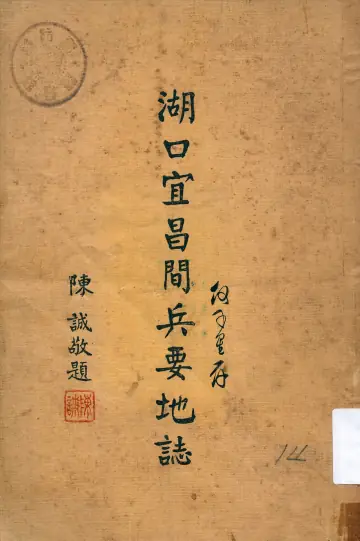 湖口宜昌間兵要地誌
陳誠敬題
14